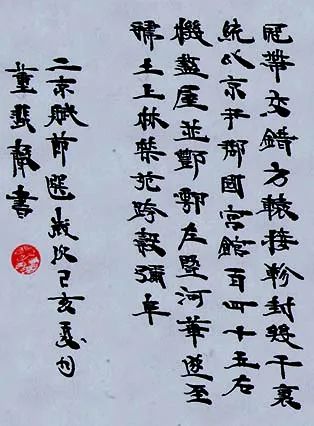 冠帶交錯方轅接軫封畿千裏
統以京尹郡國宮館百四十五右
極盩屋並酆鄠左暨河華遂至
虢土上林禁苑跨穀彌阜
二京賦節選歲次己亥夏月
董書